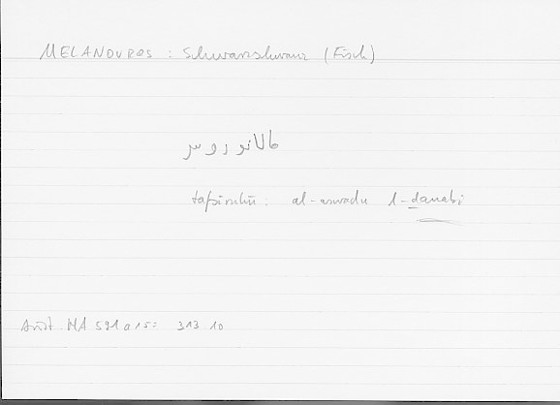 MELANOUROS : Schwarzschwanz (Fisch)
مالانوروس
tafsīruhū: al-aswadu l-ḏanabi
Arist. HA 591 a 15: 313 10